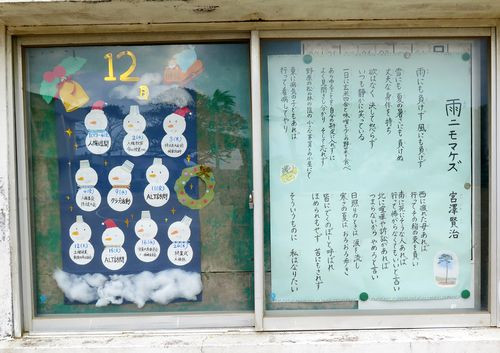 12月
人権週間
2(水)
3(木)
9(水)
クラブ活動
ALT訪問
ALT訪問
終業式
雨ニモマケズ
宮澤賢治
雨にも負けず 風にも負けず
雪にも 夏の暑さにも 負けぬ
丈夫な身体を持ち
欲はなく 決して怒らず
いつも静かに笑っている
一日に玄米四合と味噌と少しの野菜を食べ
あらゆることを自分を勘定に入れずに
よく見聞きし分かり そして忘れず
野原の松の林の蔭の小さな茅ぶきの小屋にいて
東に病気の子どもあれば
行って看病してやり
西に疲れた母あれば
行ってその稲の束を負い
南に死にそうな人あれば
行って怖がらなくてもいいと言い
北に喧嘩や訴訟があれば
つまらないからやめろと言い
日照りのときは 涙を流し
寒さの夏は おろおろ歩き
皆にでくのぼーと呼ばれ
ほめられもせず 苦にもされず
そういうものに 私はなりたい